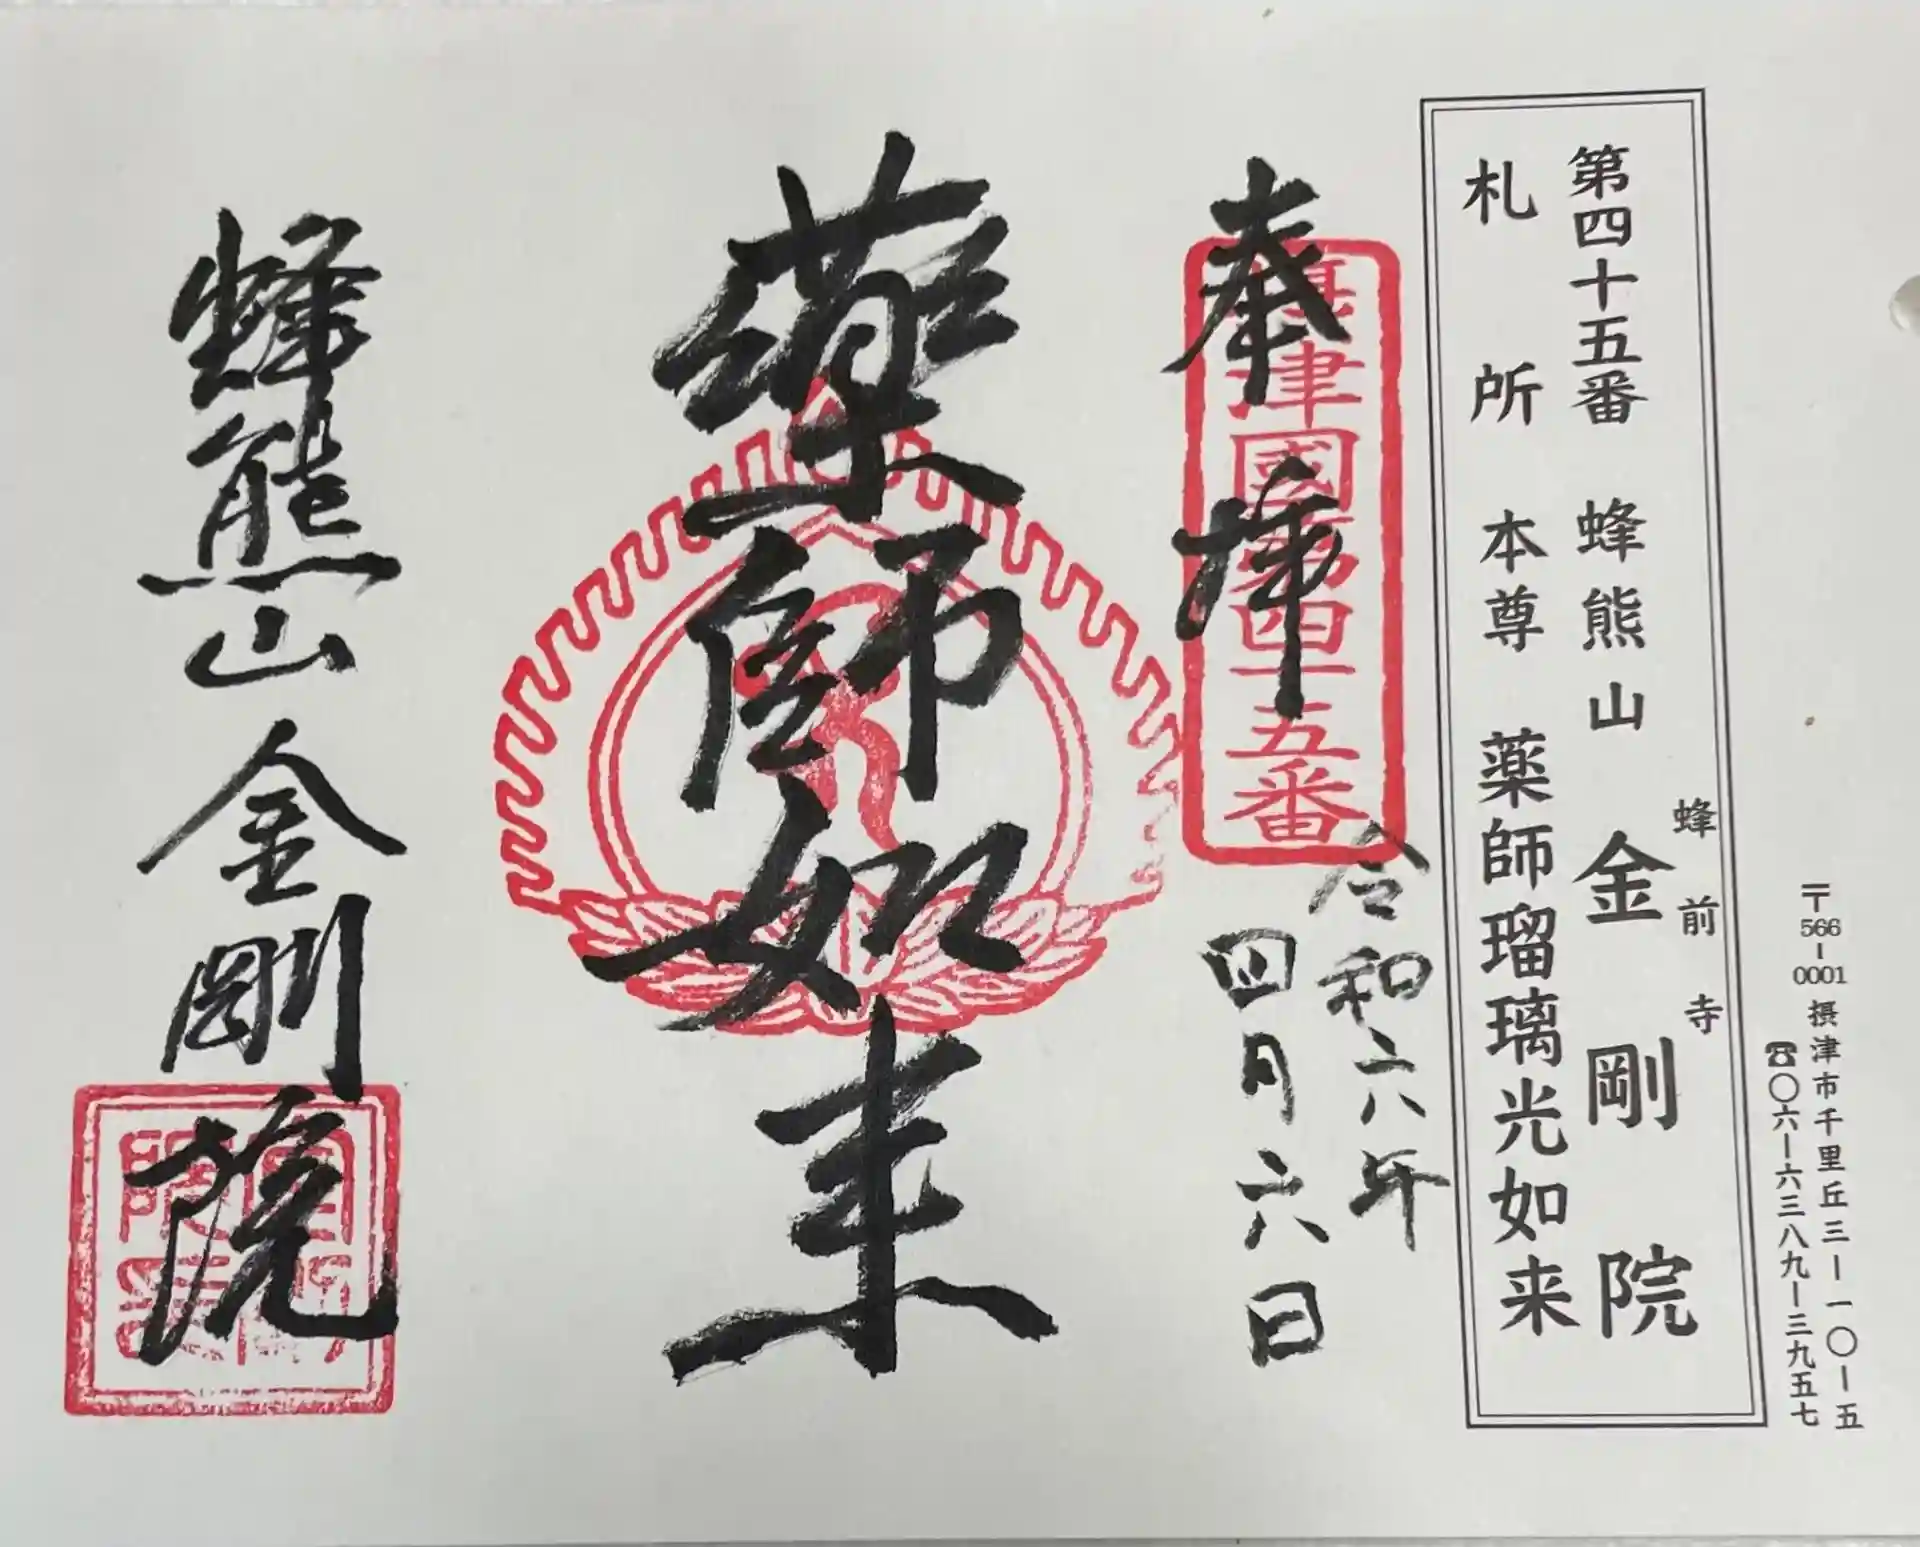 〒566-0001 摂津市千里丘三ー一〇ー五
☎〇六ー六三八九ー三九五七
蜂前寺
第四十五番 蜂熊山 金剛院
札所本尊 薬師瑠璃光如来
奉拝
摂津國第四十五番
令和六年
四月六日
薬師如来
蜂熊山金剛院